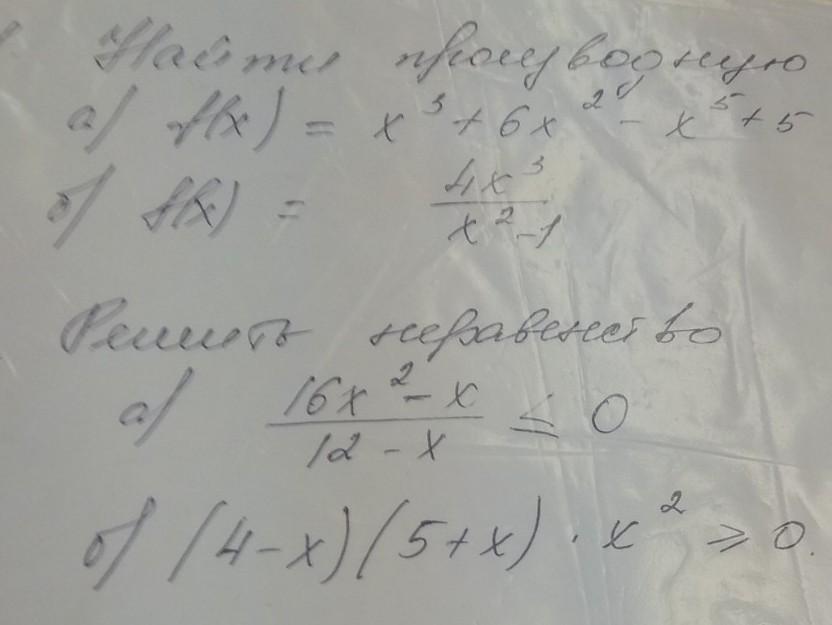 Найти производную
а) f(x) = x³ + 6x² - x⁵ + 5
б) f(x) = \frac{4x³}{x² - 1}
Решить неравенство
а) \frac{16x² - x}{12 - x} ≤ 0
б) (4 - x)(5 + x) · x² ≥ 0.